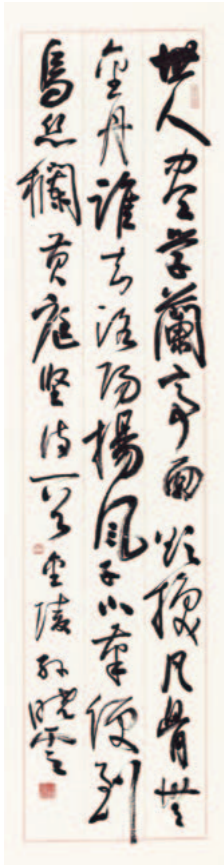 世人盡學蘭亭面欲換凡骨無
金丹誰知洛陽楊風子下筆便到
烏絲欄黃庭堅詩一首金陵孫曉雲